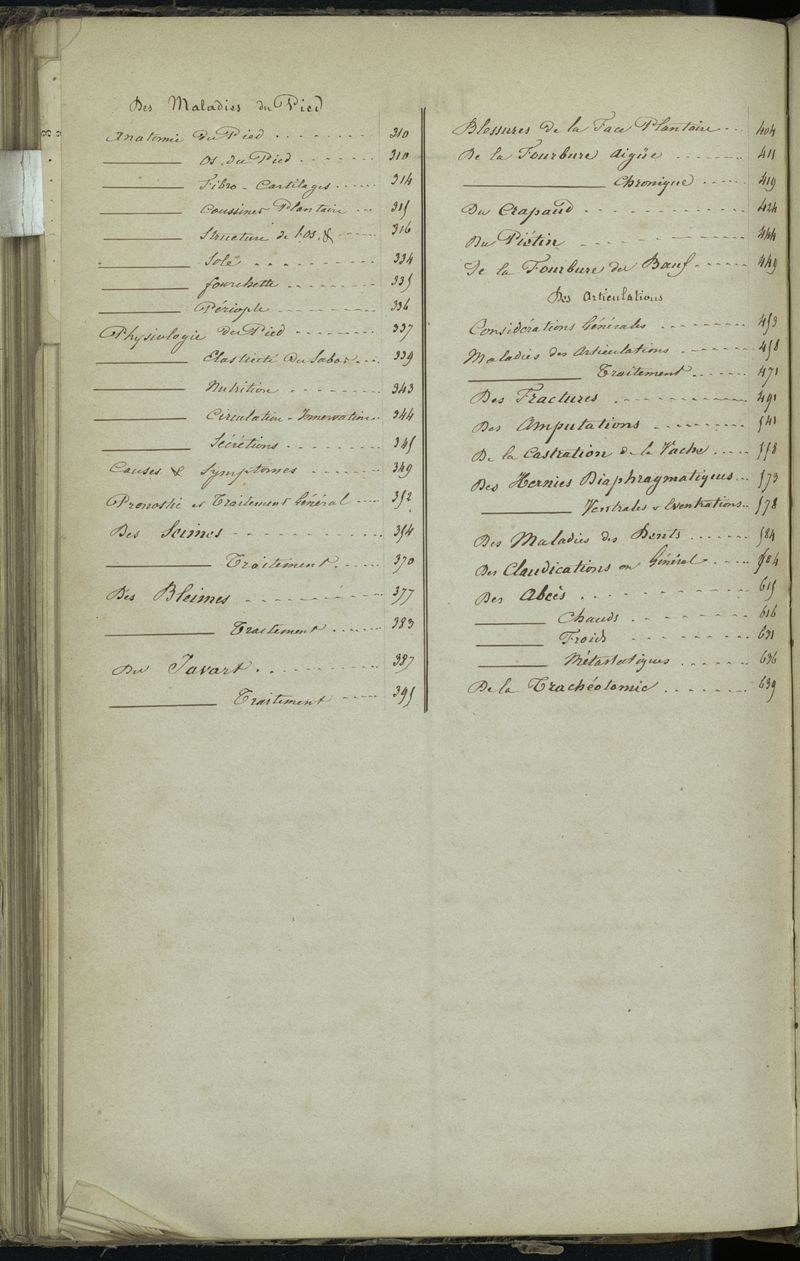 Des Maladies du Pied
Anatomie du Pied 310
Os du Pied 310
Fibro-Cartilages 314
Coussinet Plantaire 315
Structure de l'os, & 316
Sole 334
fourchette 335
Périople 336
Physiologie du Pied 337
Elasticité Du Sabot 339
Nutrition 343
Circulation - Innervation 344
Sécrétions 345
Causes & Symptômes 349
Pronostic et Traitement Général 352
Des Seimes 354
Traitement 370
Des Bleimes 377
Traitement 383
Du Javart 387
Traitement 395
Blessures de la Face Plantaire 404
De la Fourbure Aigüe 411
Chronique 419
Du Crapaud 424
Du Piétin 444
De la Fourbure du Bœuf 449
Des Articulations
Considérations Générales 453
Maladies des Articulations 458
Traitement 471
Des Fractures 491
Des Amputations 541
De la Castration de la Vache 558
Des Hernies Diaphragmatiques 573
Ventrales & Eventrations 578
Des Maladies des Dents 584
Des Claudications en Général
Des Abcès 615
Chauds 616
Froids 631
Métastatiques 636
De la Trachéotomie 639